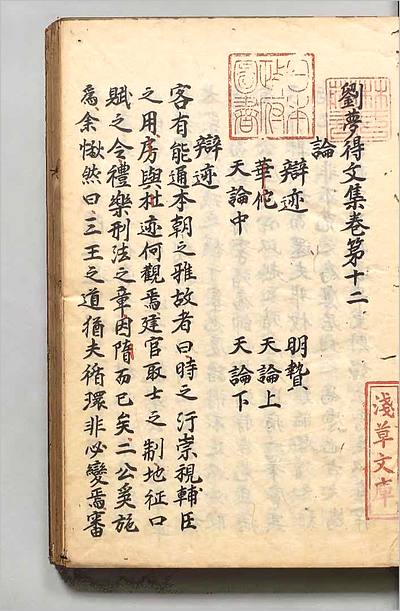 劉夢得文集卷第十二
論
辯迹 明贄
華佗 天論上
天論中 天論下
辯迹
客有能通本朝之雅故者曰時之汙崇視輔臣
之用房與杜迹何觀焉建官取士之制地征口
賦之令禮樂刑法之章因隋而已矣二公奚施
爲余愀然曰三王之道猶夫循環非必變焉審
日本政府圖書
淺草文庫